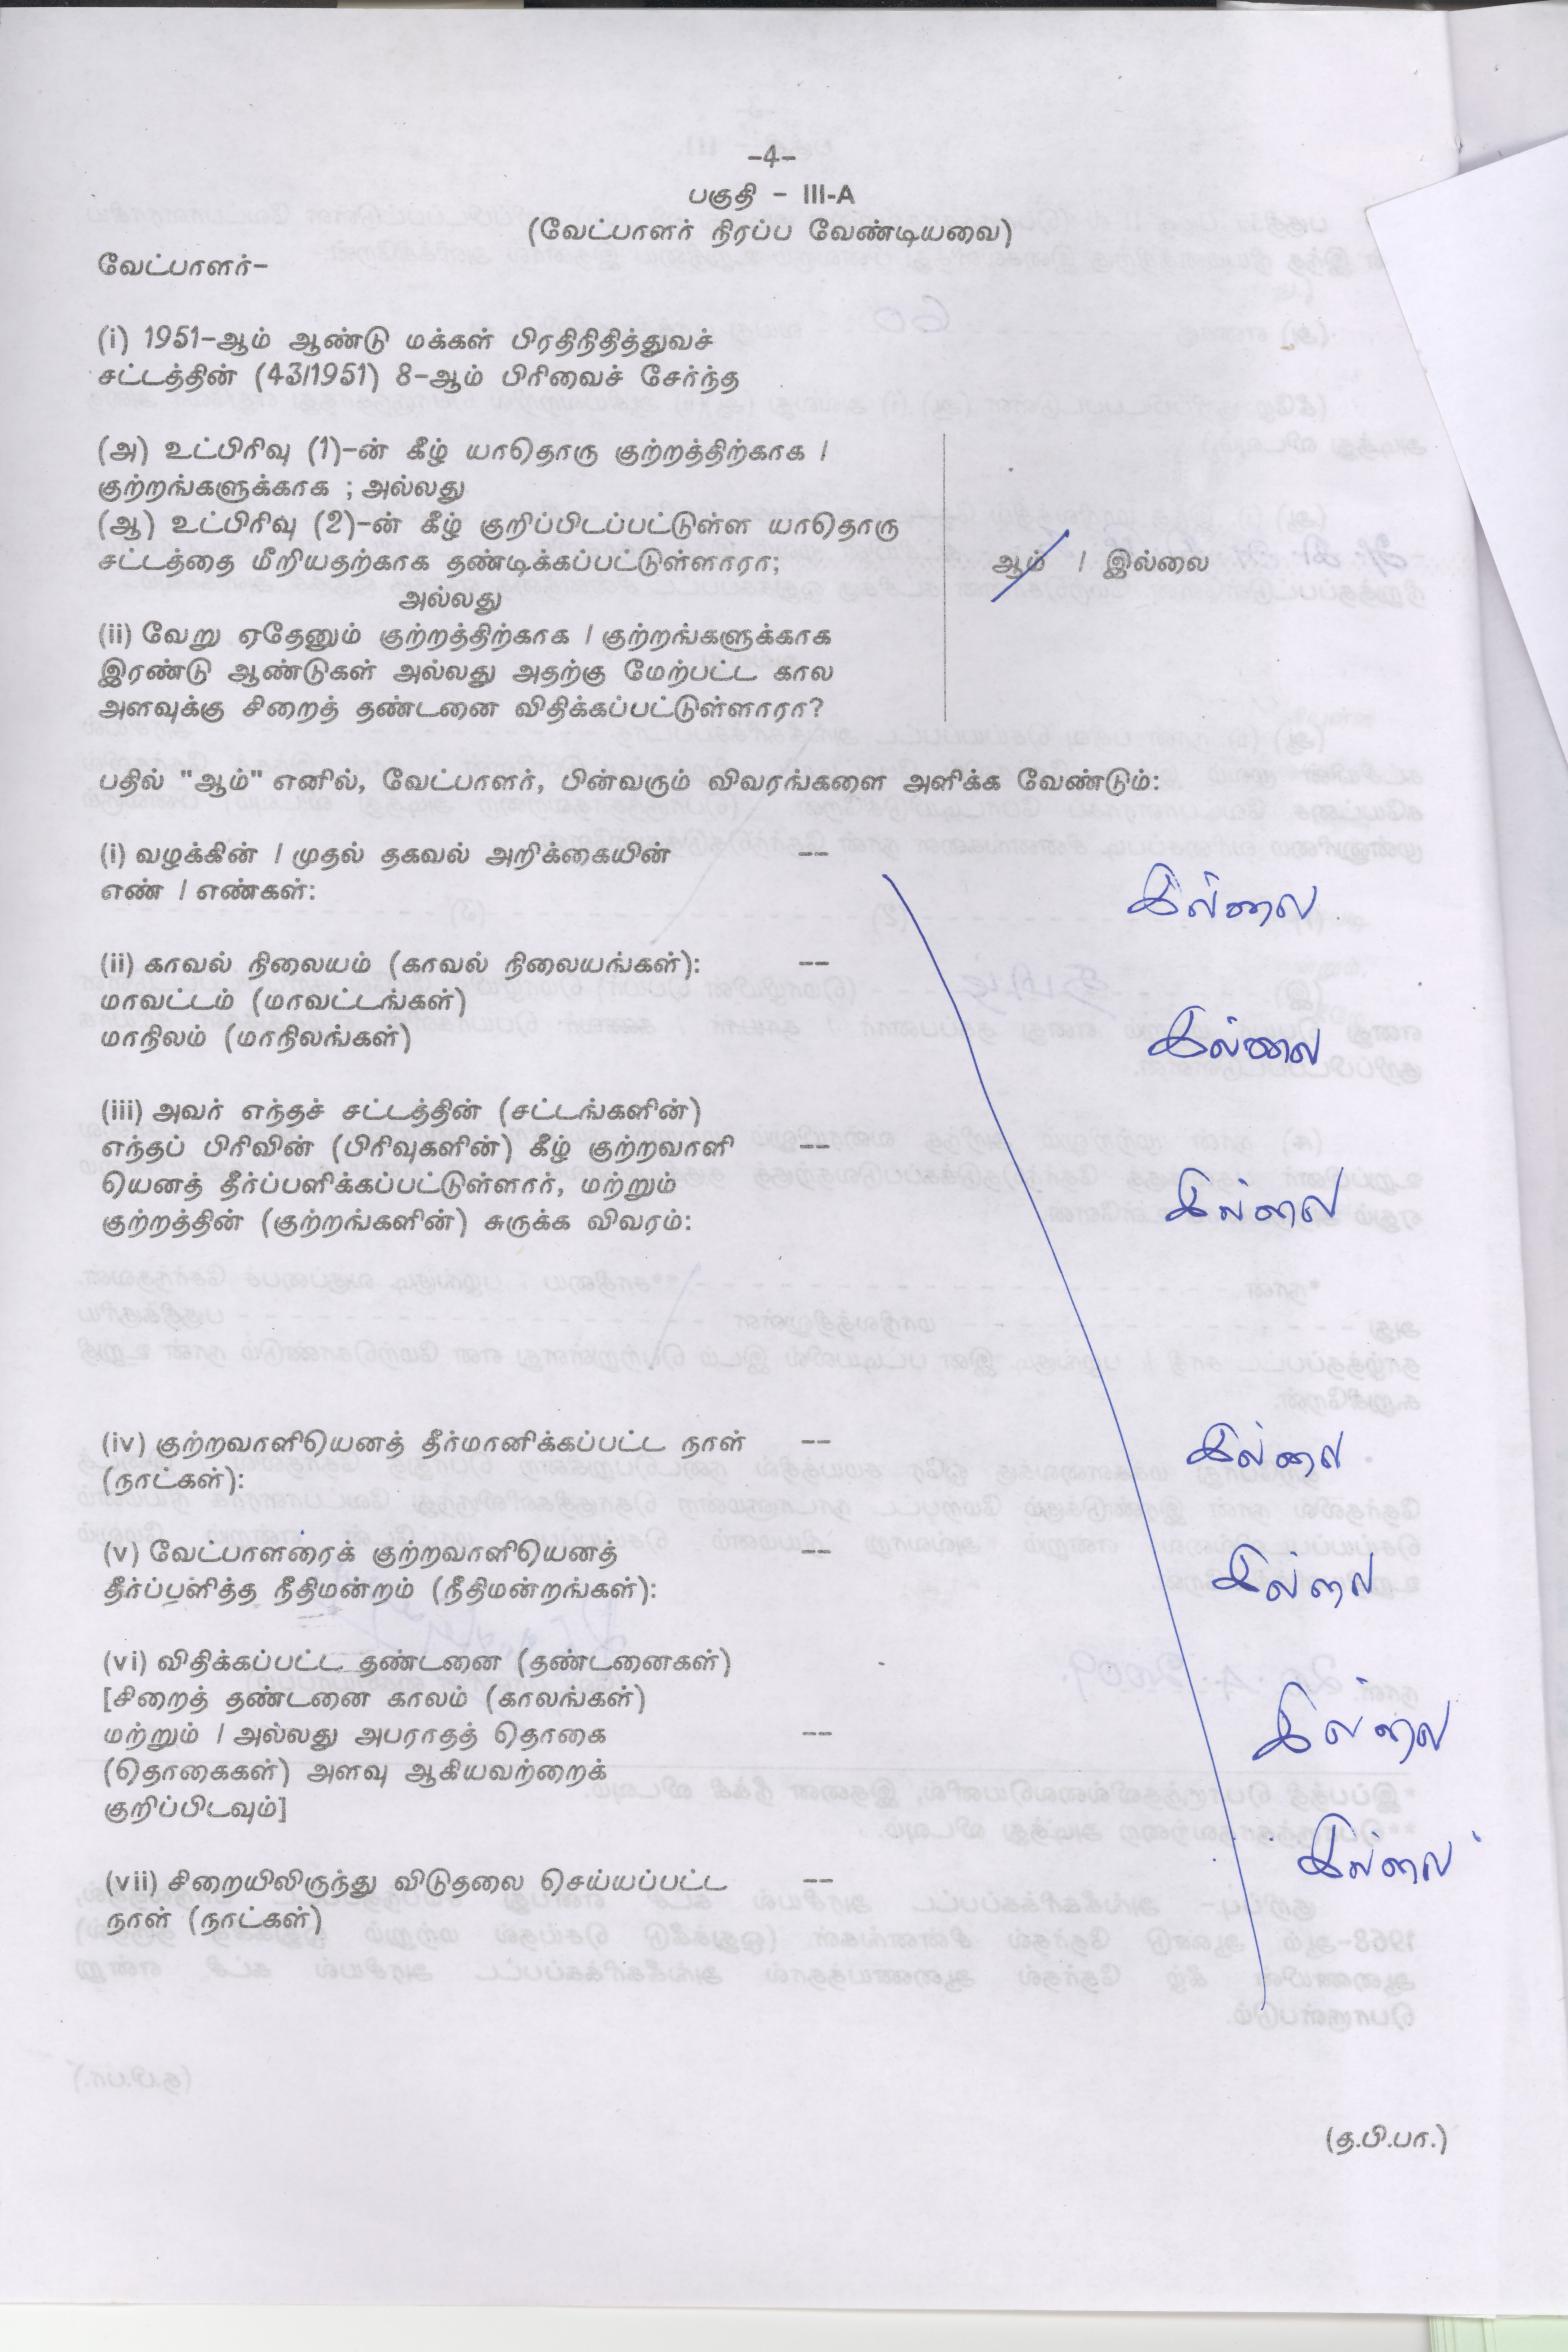 -4-
பகுதி - III-A
(வேட்பாளர் நிரப்ப வேண்டியவை)
வேட்பாளர்-
(i) 1951-ஆம் ஆண்டு மக்கள் பிரதிநிதித்துவச்
சட்டத்தின் (43/1951) 8-ஆம் பிரிவைச் சேர்ந்த
(அ) உட்பிரிவு (1)-ன் கீழ் யாதொரு குற்றத்திற்காக /
குற்றங்களுக்காக ; அல்லது
(ஆ) உட்பிரிவு (2)-ன் கீழ் குறிப்பிடப்பட்டுள்ள யாதொரு
சட்டத்தை மீறியதற்காக தண்டிக்கப்பட்டுள்ளாரா; ஆம் / இல்லை
அல்லது
(ii) வேறு ஏதேனும் குற்றத்திற்காக / குற்றங்களுக்காக
இரண்டு ஆண்டுகள் அல்லது அதற்கு மேற்பட்ட கால
அளவுக்கு சிறைத் தண்டனை விதிக்கப்பட்டுள்ளாரா?
பதில் "ஆம்" எனில், வேட்பாளர், பின்வரும் விவரங்களை அளிக்க வேண்டும்:
(i) வழக்கின் / முதல் தகவல் அறிக்கையின் --
எண் / எண்கள்: இல்லை
(ii) காவல் நிலையம் (காவல் நிலையங்கள்): --
மாவட்டம் (மாவட்டங்கள்)
மாநிலம் (மாநிலங்கள்) இல்லை
(iii) அவர் எந்தச் சட்டத்தின் (சட்டங்களின்)
எந்தப் பிரிவின் (பிரிவுகளின்) கீழ் குற்றவாளி --
யெனத் தீர்ப்பளிக்கப்பட்டுள்ளார், மற்றும் இல்லை
குற்றத்தின் (குற்றங்களின்) சுருக்க விவரம்:
(iv) குற்றவாளியெனத் தீர்மானிக்கப்பட்ட நாள் -- இல்லை
(நாட்கள்):
(v) வேட்பாளரைக் குற்றவாளியெனத் --
தீர்ப்பளித்த நீதிமன்றம் (நீதிமன்றங்கள்): இல்லை
(vi) விதிக்கப்பட்ட தண்டனை (தண்டனைகள்)
[சிறைத் தண்டனை காலம் (காலங்கள்)
மற்றும் / அல்லது அபராதத் தொகை -- இல்லை
(தொகைகள்) அளவு ஆகியவற்றைக்
குறிப்பிடவும்]
(vii) சிறையிலிருந்து விடுதலை செய்யப்பட்ட -- இல்லை
நாள் (நாட்கள்)
(த.பி.பா.)